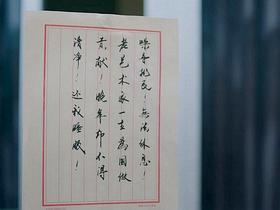 噪音扰民！無法休息！
老艺术家一生為国做
贡献！晚年却不得
清净！还我睡眠！